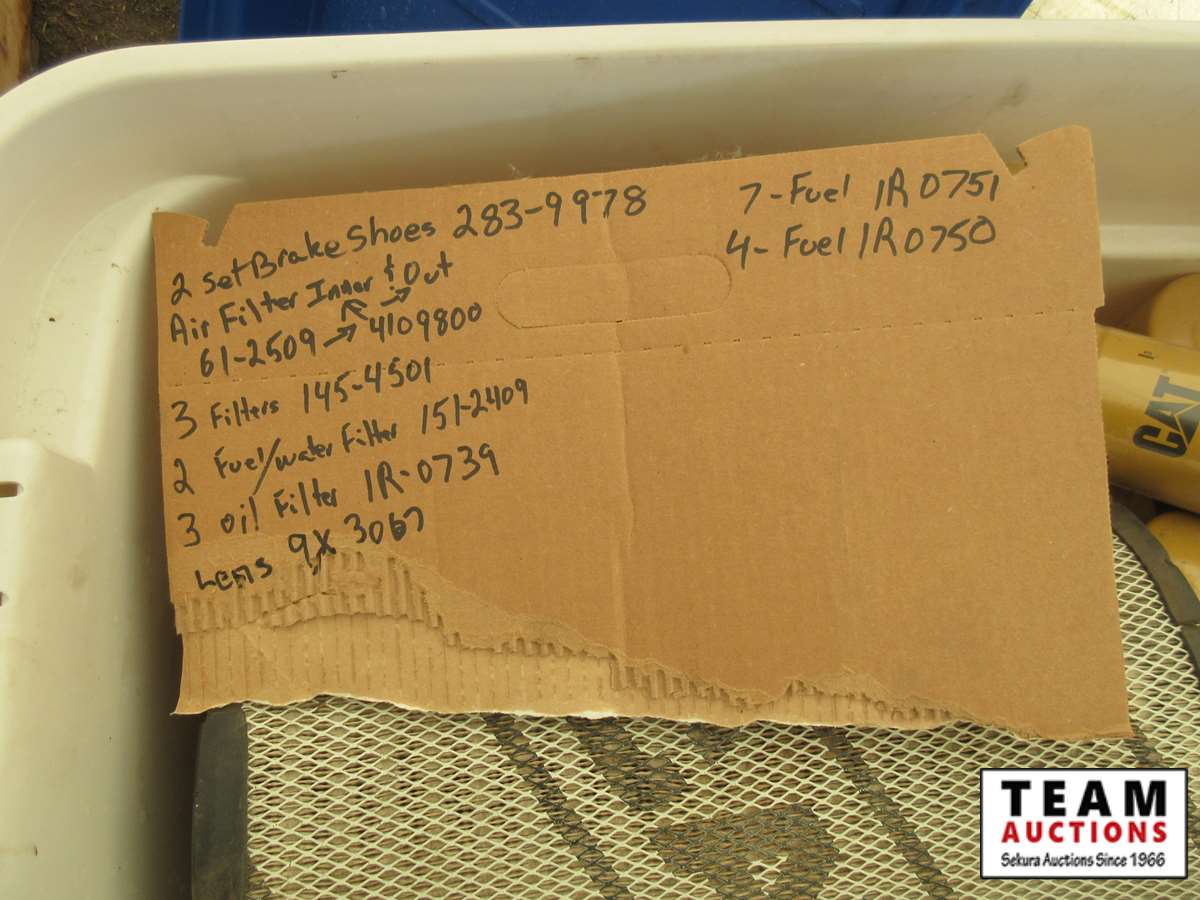 2 set Brake Shoes 283-9978
Air Filter Inner & Out
61-2509 → 4109800
3 Filters 145-4501
2 Fuel/water Filter 151-2409
3 oil Filter 1R-0739
Lens 9X 3067
7-Fuel 1R0751
4-Fuel 1R0750
CAT
TEAM
AUCTIONS
Sekura Auctions Since 1966